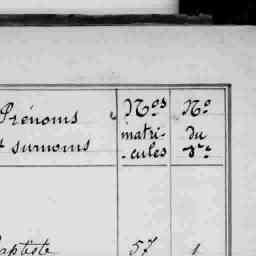 Prénoms
et surnoms
Nos
matri-
-cules
No
du
aptiste 57 1